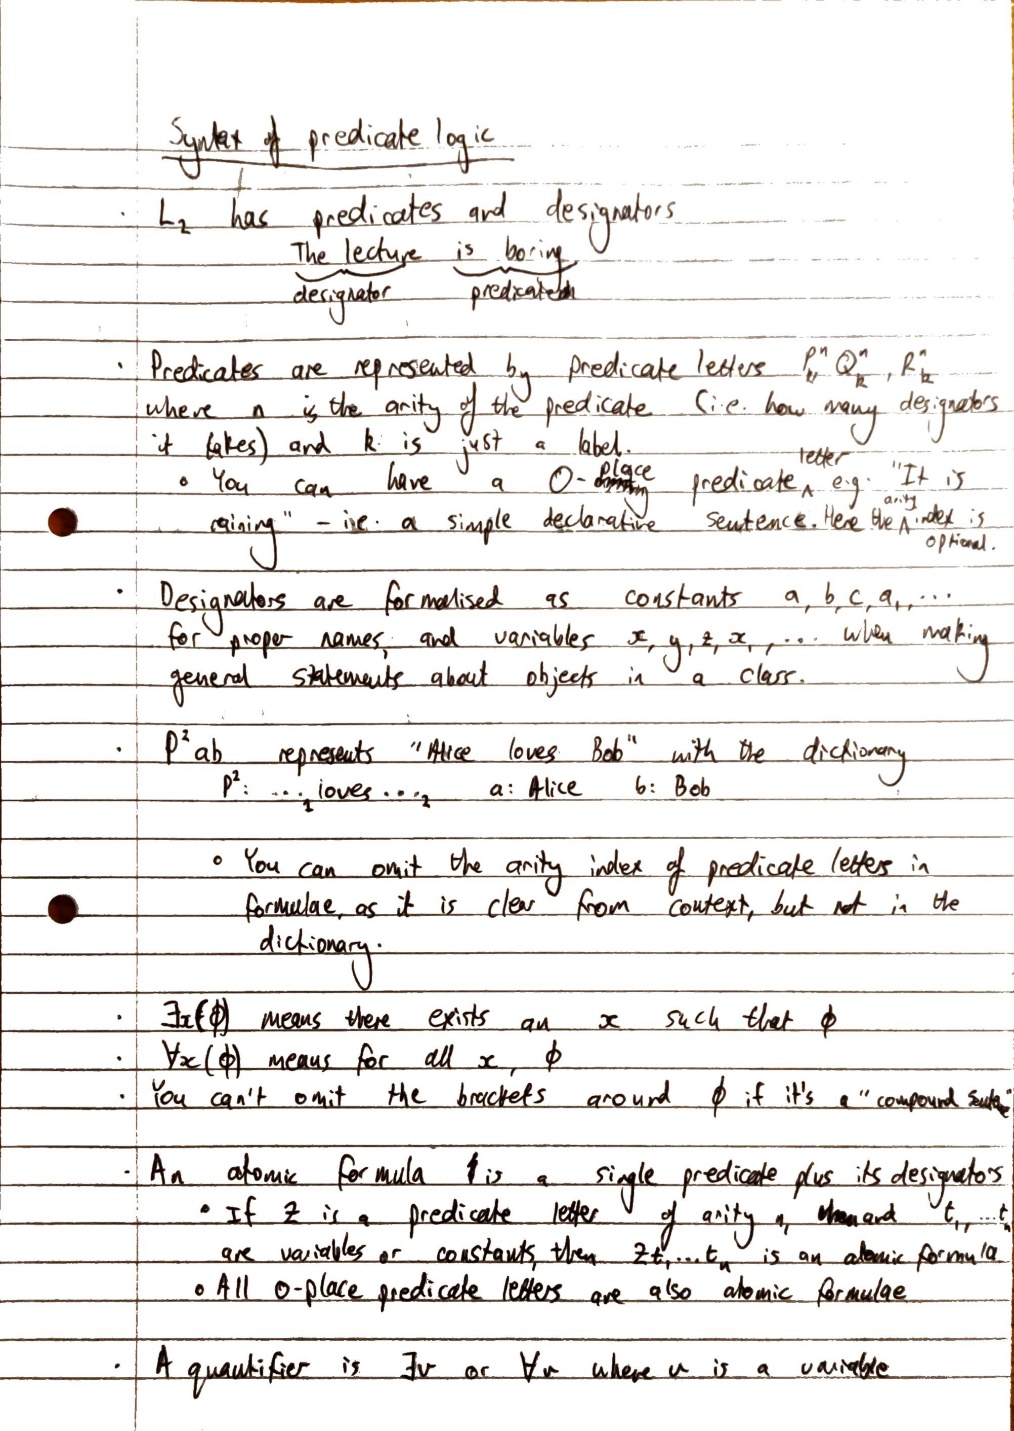 Syntax of predicate logic
· L₂ has predicates and designators
The lecture is boring
designator predicate
· Predicates are represented by predicate letters Pⁿₖ, Qⁿₖ, Rⁿₖ
where n is the arity of the predicate (i.e. how many designators
it takes) and k is just a label.
∘ You can have a 0-place predicate letter e.g. "It is
raining" – i.e. a simple declarative sentence. Here the arity index is
optional.
· Designators are formalised as constants a, b, c, a₁, ...
for proper names, and variables x, y, z, x₁, ... when making
general statements about objects in a class.
· P²ab represents "Alice loves Bob" with the dictionary
P²: ...₁ loves ...₂ a: Alice b: Bob
∘ You can omit the arity index of predicate letters in
formulae, as it is clear from context, but not in the
dictionary.
· ∃x(ϕ) means there exists an x such that ϕ
· ∀x(ϕ) means for all x, ϕ
· You can't omit the brackets around ϕ if it's a "compound sentence"
· An atomic formula is a single predicate plus its designators
∘ If Z is a predicate letter of arity n, and t₁, ... tₙ
are variables or constants, then Zt₁...tₙ is an atomic formula
∘ All 0-place predicate letters are also atomic formulae
· A quantifier is ∃v or ∀v where v is a variable